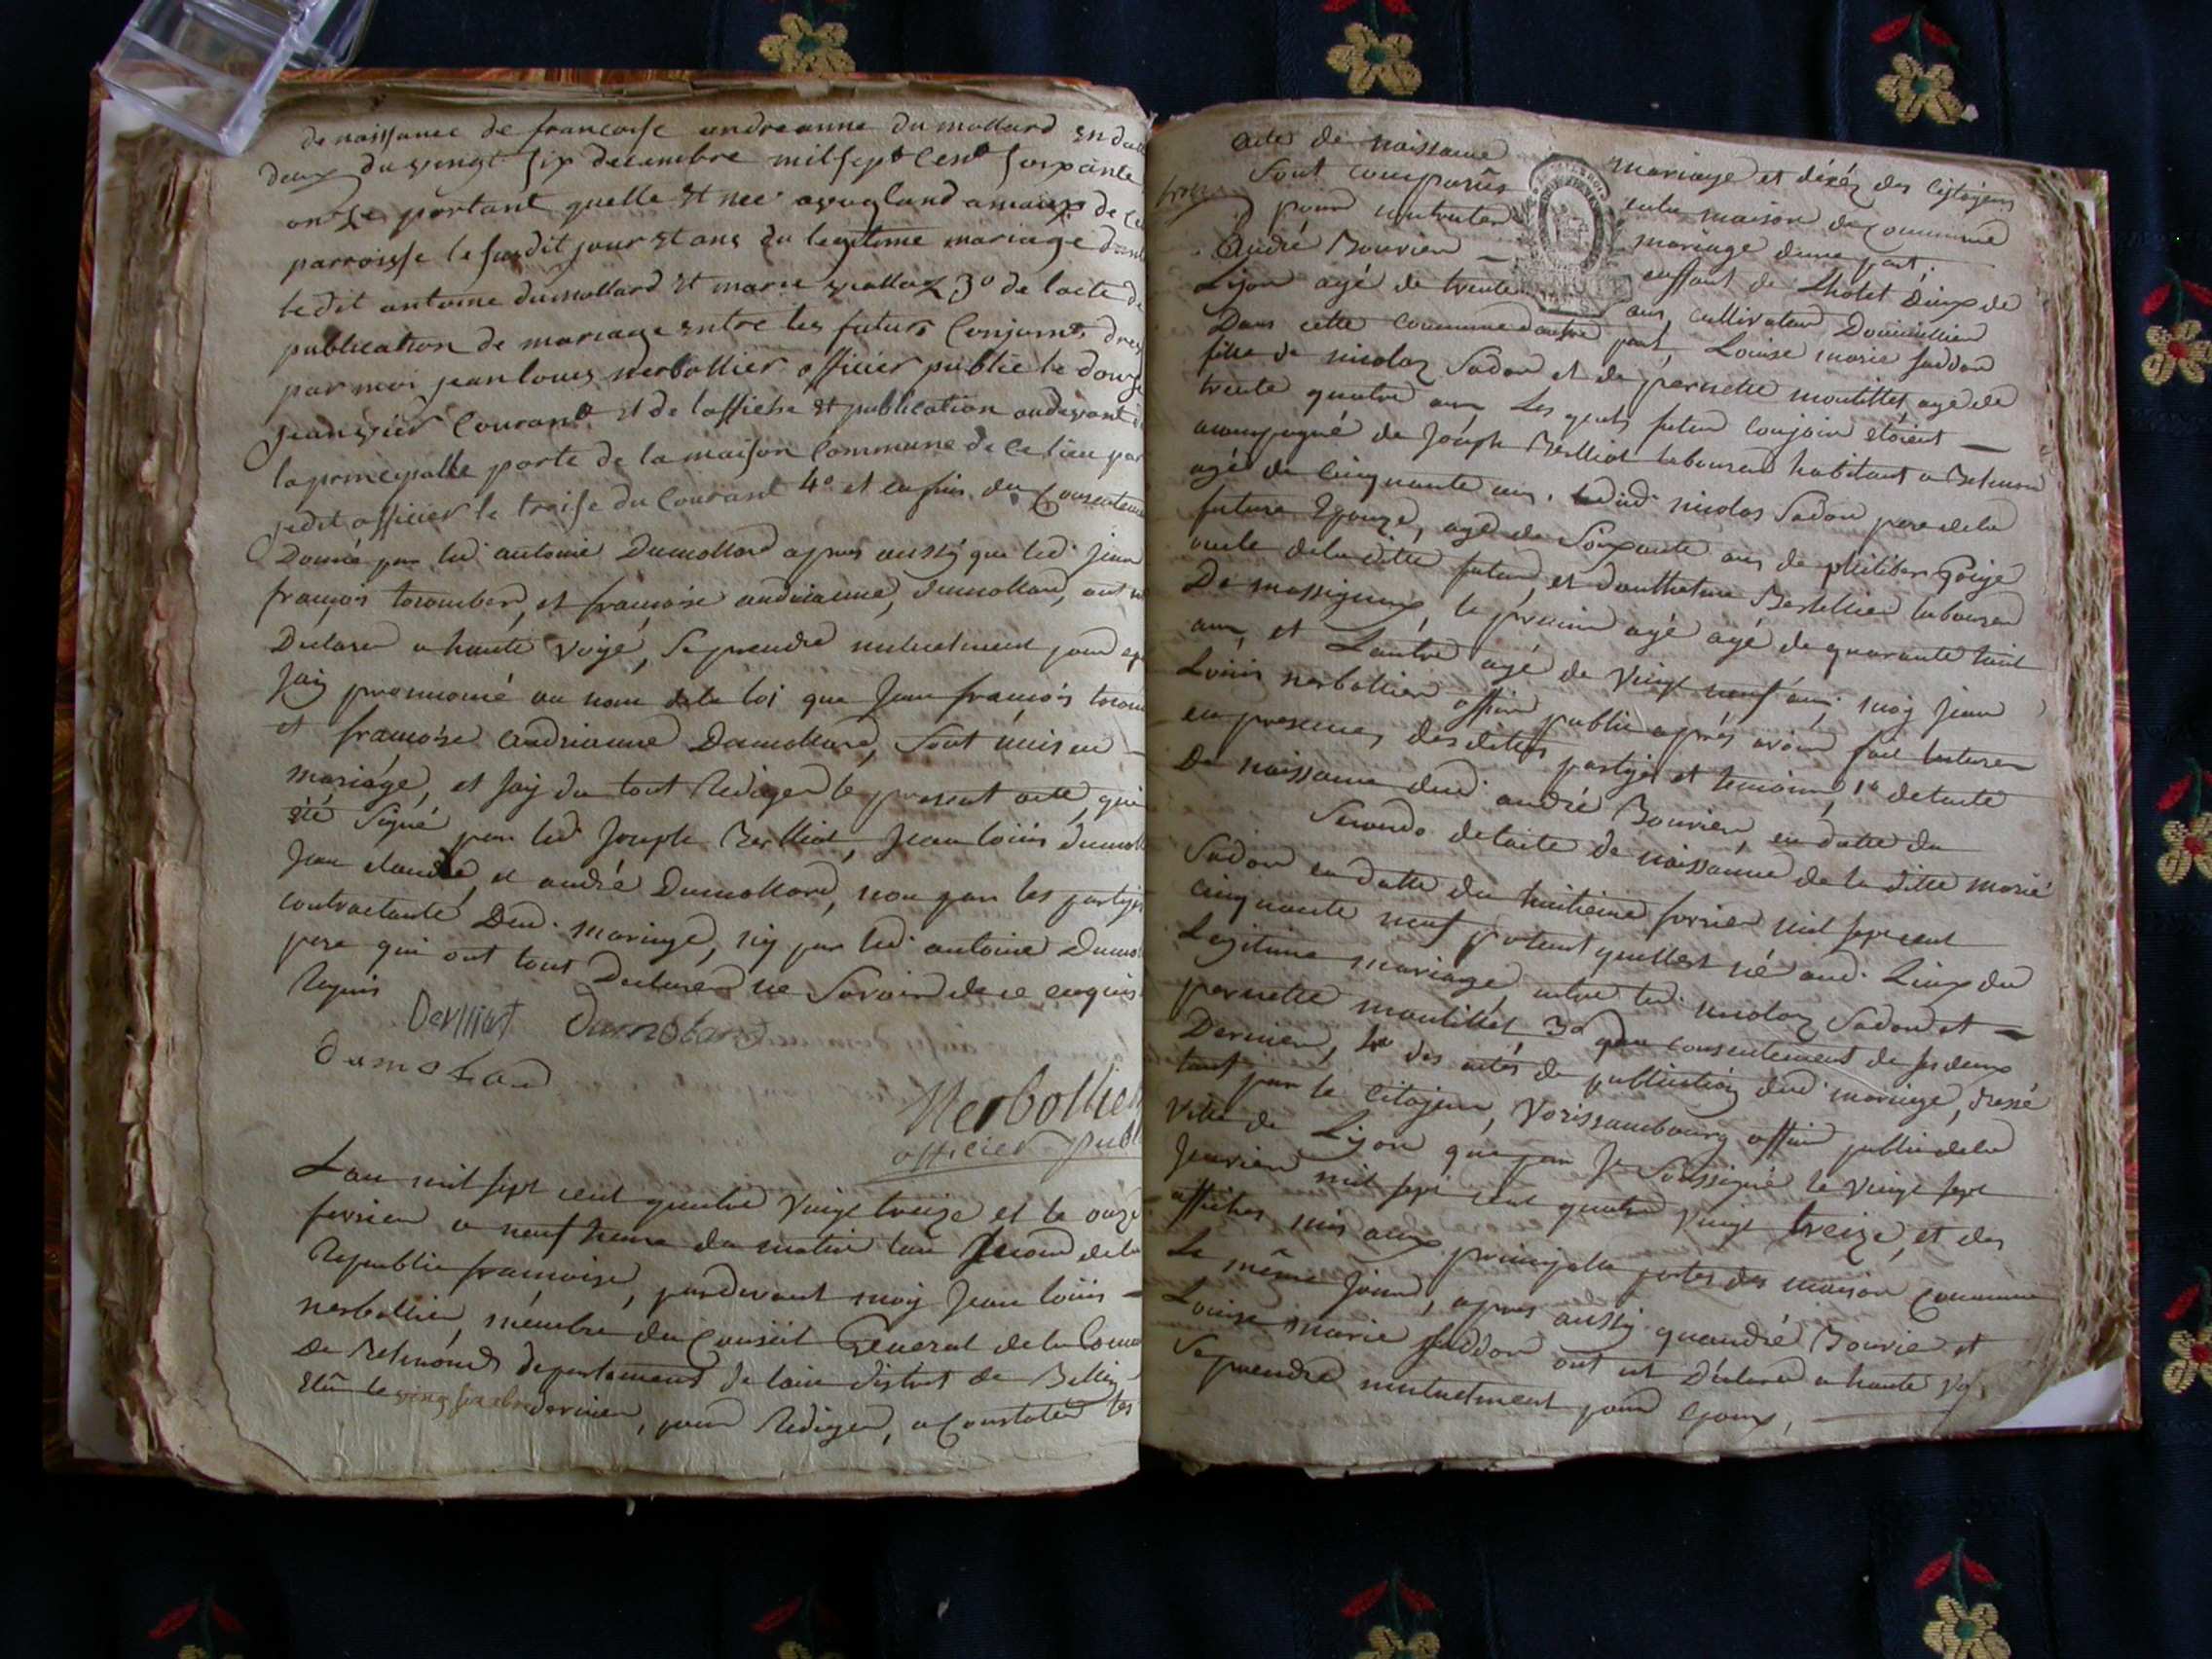 de naissance de francoise andreanne dumollard en datte
deux du vingt six decembre mil sept cent soixante
onze portant quelle et nee a
parroisse le susdit jour et ans du legitime mariage
ledit antoine dumollard et marie 3o de lacte de
publication de mariage entre les futurs Conjoints
par moi jean louis nerbollier officier public le douze
janvier Courant et de laffiche et publication audevant
la principalle porte de la maison Commune de ce lieu par
ledit officier le treise du Courant 4o et enfin du Consenteme
Donné par led. antoine Dumollard apres aussy que led. jean
françois et françoise andrianne dumollard, ont
Declarer a haute voye, se prendre mutuelment pour
Jay prononcé au nom de la loi que Jean françois
et françoise andrianne Dumollard, sont unis en
mariage, et Jay du tout Rediger le present acte, qui
été signé par led. Joseph Berlliot, Jean loüis dumoll
Jean claude et andré Dumollard, non par les partyes
contractante Dud. mariage, ny par led. antoine Dumo
pere qui ont tous Declarer ne Savoir de ce enquis
Requis
Berlliot Dumolard
dumolard
Nerbollier
officier publ
Lan mil sept cent quatre vingt treize et le onze
fevrier a neuf heure du matin lan second de la
Republic françoise, pardevant moy Jean loüis
nerbollier, membre du Conseil General de la Comu
De Belmond departement de lain district de Belley
Elû le dernier, pour Rediger, a Constater les
acte de naissance mariage et décéz des Citoyens
Sont comparûs maison de Commune
pour contracter mariage dune part;
André Bouvier enffant de Lhotel Dieux de
Lyon agé de trente ans, cultivateur Domicillier
Dans cette commune dautre part, Louise marie saddon
fille de nicolaz Sadon et de pernette moutillet, agé de
trente quatre ans, Les quels futur Conjoin étoient
acompagné de Joseph Berlliot laboureur habitant a Belmon
agé de Cinquante ans, dud. nicolas Sadon pere de la
future Epouze, agé de Soixante ans, de philiber
oncle de la ditte future, et danthelme Berthellier laboureur
De massigneux, le premier agé agé de quarante huit
ans, et Lautre agé de vingt neuf ans, moy Jean
Loüis nerbollier officier public aprés avoir fait lecture
en presences desdittes partyes et temoins, 1o de lacte
De naissance dud. andré Bouvier, en datte du
Secondo de lacte de naissance de la ditte marie
Sadon en datte du huitieme fevrier mil sept cent
cinquante neuf portant quellest né aud. Lieux du
Legitime mariage entre led. nicolaz Sadon et
pernette moutillet, 3o du consentement de ses deux
Dernier, 4o des actes de publication dud. mariage, dressé
tant par le Citoyen, officier public de la
ville de Lyon que par Je Soussigné le vingt sept
Janvier mil sept cent quatre vingt treize, et des
affiches mis aux principalle portes des maison Commune
Le même Jour, apres aussy quandré Bouvie et
Louise marie saddon ont Déclaré a haute
Se prendre mutuelment pour Epoux,